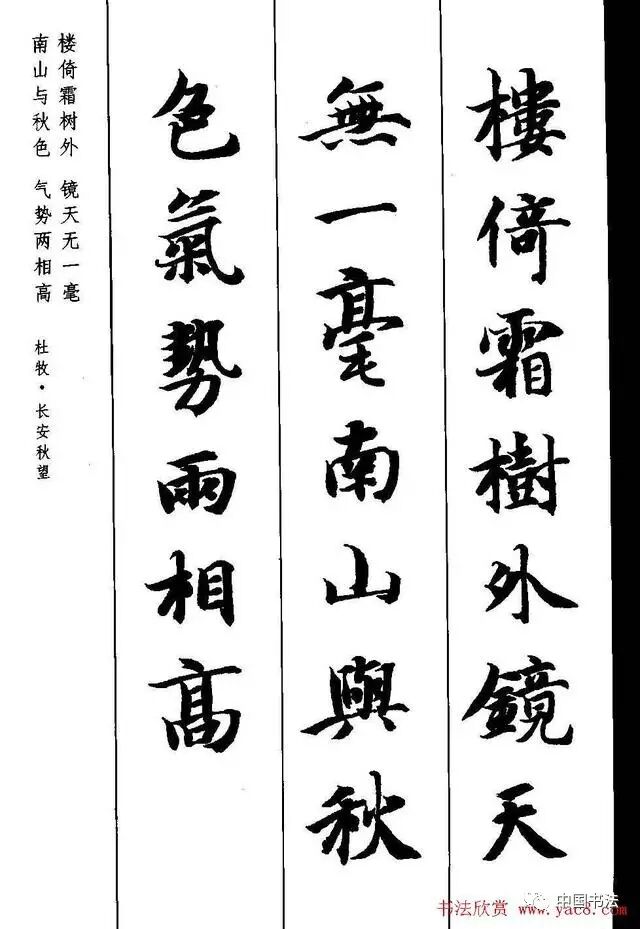 樓倚霜樹外鏡天
無一毫南山與秋
色氣勢兩相高
楼倚霜树外 镜天无一毫
南山与秋色 气势两相高
杜牧·长安秋望
中国书法
书法欣赏 www.yac8.com